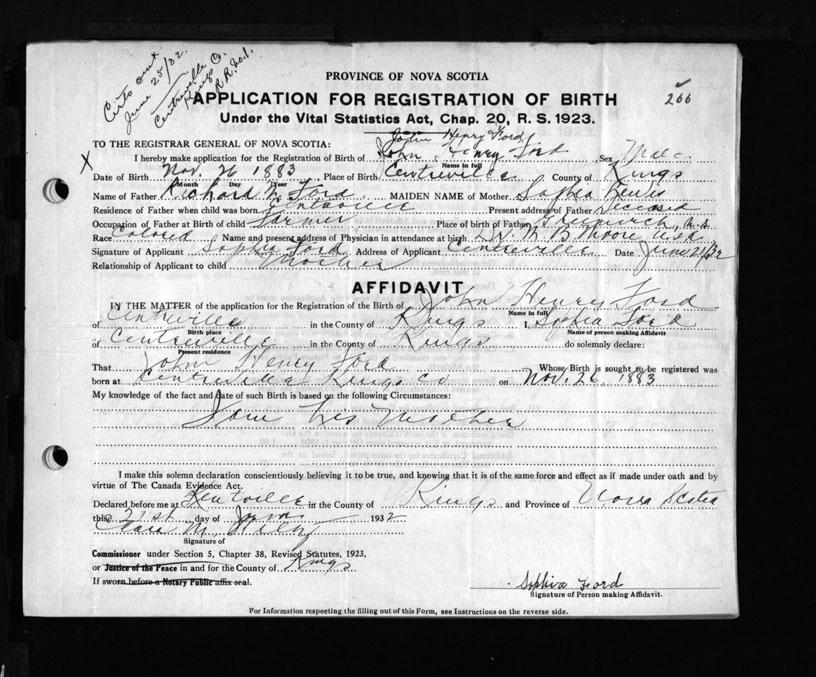 Certs sent
June 25/32.
Centreville
Kings Co.
R.R. No. 1.
200
PROVINCE OF NOVA SCOTIA
APPLICATION FOR REGISTRATION OF BIRTH
Under the Vital Statistics Act, Chap. 20, R. S. 1923.
TO THE REGISTRAR GENERAL OF NOVA SCOTIA:
John Henry Ford
X
I hereby make application for the Registration of Birth of John Henry Ford Sex Male.
Name in full
Date of Birth Nov. 26 1883 Place of Birth Centreville County of Kings
Month Day Year
Name of Father Richard Ford MAIDEN NAME of Mother Sophia
Residence of Father when child was born Centreville Present address of Father Deceased
Occupation of Father at Birth of child farmer Place of birth of Father
Race Colored Name and present address of Physician in attendance at birth Dr. B Moore
Signature of Applicant Sophia Ford Address of Applicant Centreville Date June 21/32
Relationship of Applicant to child Mother
AFFIDAVIT
IN THE MATTER of the application for the Registration of the Birth of John Henry Ford
Name in full
of Centreville in the County of Kings I, Sophia Ford
Birth place Name of person making Affidavit
of Centreville in the County of Kings do solemnly declare:
Present residence
That John Henry Ford Whose Birth is sought to be registered was
born at Centreville Kings Co on Nov. 26. 1883
My knowledge of the fact and date of such Birth is based on the following Circumstances:
I am his Mother
I make this solemn declaration conscientiously believing it to be true, and knowing that it is of the same force and effect as if made under oath and by
virtue of The Canada Evidence Act.
Declared before me at Kentville in the County of Kings and Province of Nova Scotia
this 21st day of June 1932
Clara M.
Signature of
Commissioner under Section 5, Chapter 38, Revised Statutes, 1923,
or Justice of the Peace in and for the County of Kings
If sworn before a Notary Public affix seal.
Sophia Ford
Signature of Person making Affidavit.
For Information respecting the filling out of this Form, see Instructions on the reverse side.